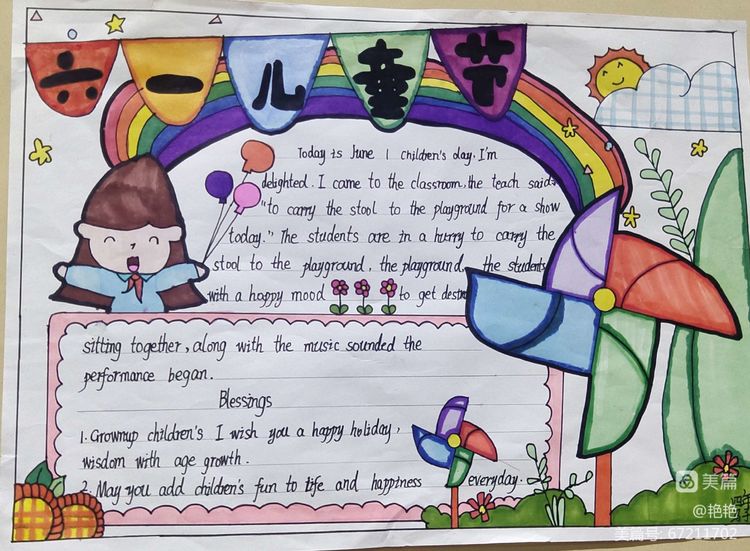 六一儿童节
Today is June 1 children's day. I'm
delighted. I came to the classroom, the teach said:
"to carry the stool to the playground for a show
today." The students are in a hurry to carry the
stool to the playground, the playground, the students
with a happy mood to get
sitting together, along with the music sounded the
performance began.
Blessings
1. Grownup children's I wish you a happy holiday,
wisdom with age growth.
2. May you add children's fun to life and happiness everyday.
美篇
@艳艳
美篇号: 67211702